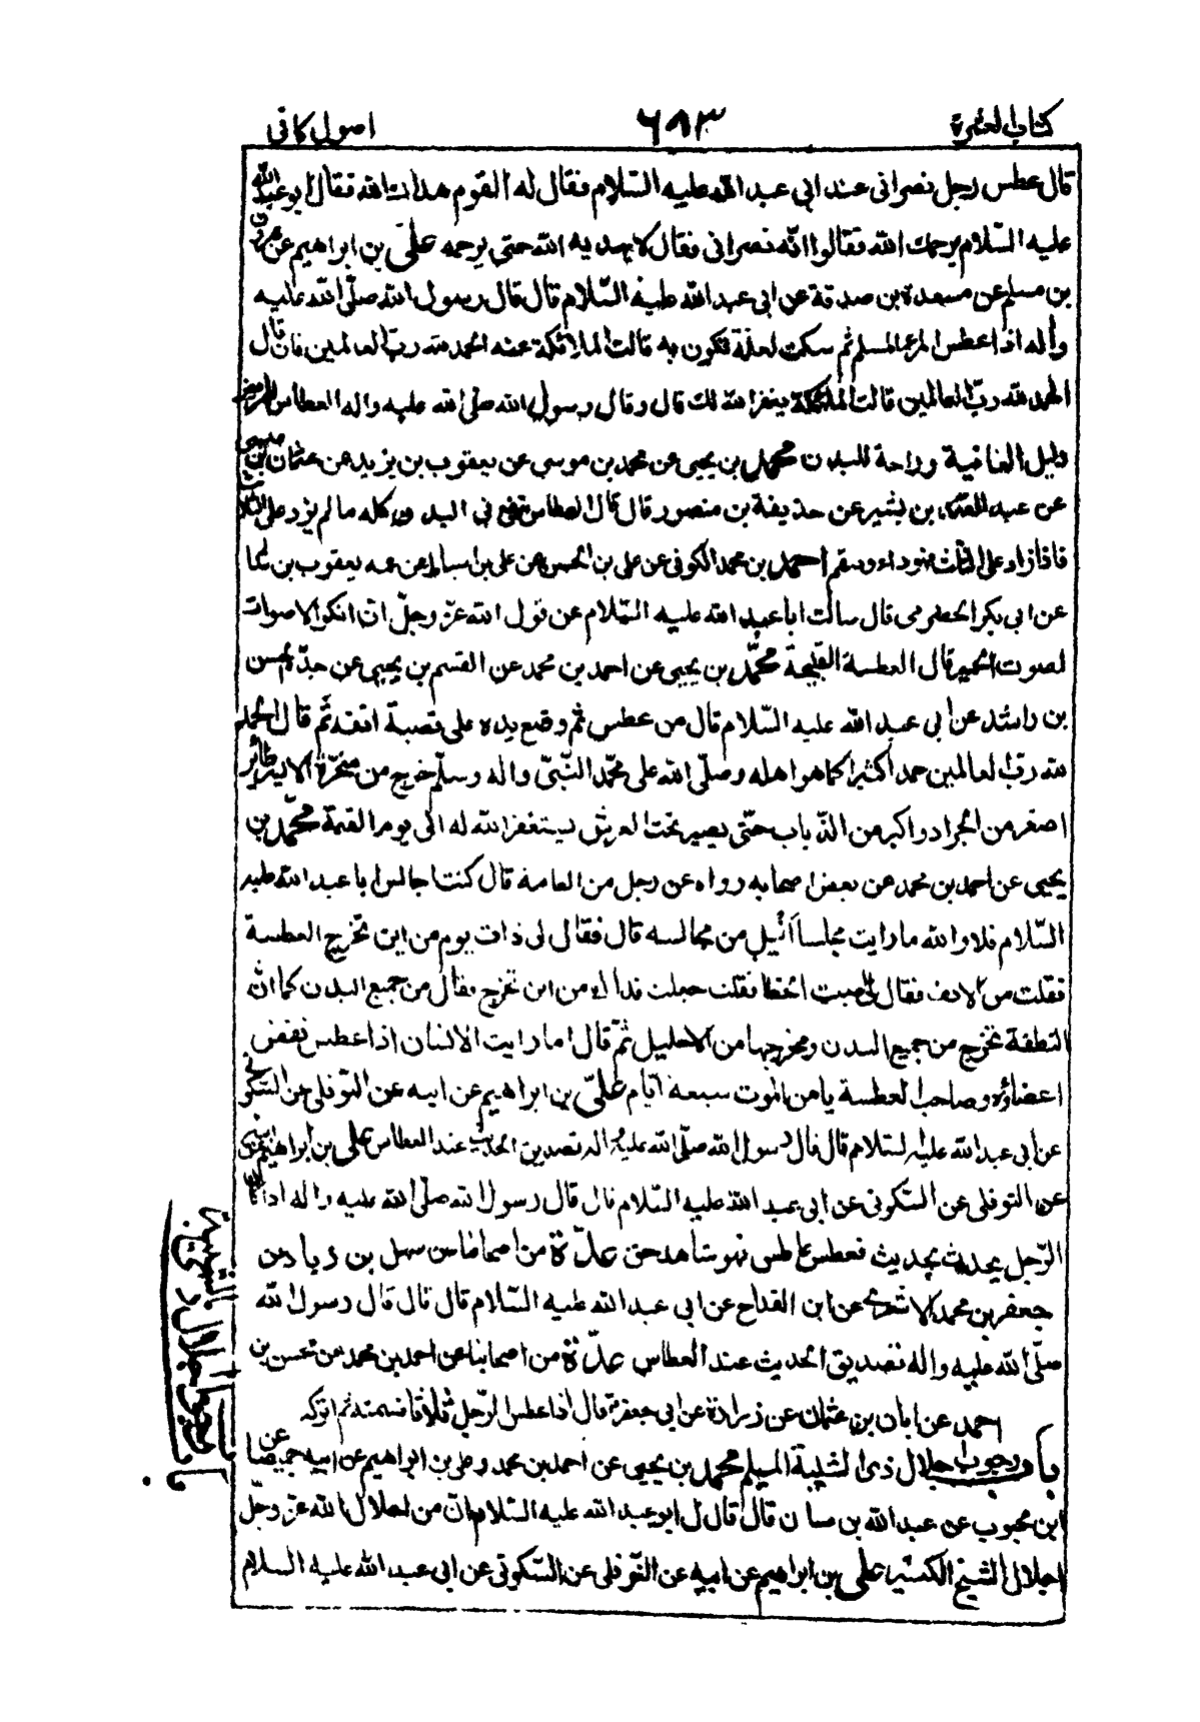 كتاب العشرة
٦٨٣
اصول كافى
قال عطس رجل نصرانى عند ابى عبد الله عليه السّلام فقال له القوم هداك الله فقال ابو عبد الله
عليه السّلام يرحمك الله فقالوا انّه نصرانى فقال لا يهديه الله حتى يرحمه علىّ بن ابراهيم عن هرون
بن مسلم عن مسعدة بن صدقة عن ابى عبد الله عليه السّلام قال قال رسول الله صلّى الله عليه
واله اذا عطس المرء المسلم ثم سكت لعلّة تكون به قالت الملائكة عنه الحمد لله ربّ العالمين فان قال
الحمد لله ربّ العالمين قالت الملئكة يغفر الله لك قال وقال رسول الله صلى الله عليه واله العطاس للمريض
دليل العافية وراحة للبدن محمد بن يحيى عن محمد بن موسى عن يعقوب بن يزيد عن عثمان بن عيسى
عن عبد الصمد بن بشير عن حذيفة بن منصور قال قال العطاس ينفع فى البدن كله ما لم يزد على الثلاث
فاذا زاد على الثلث فهو داء وسقم احمد بن محمد الكوفى عن على بن الحسن عن على بن اسباط عن عمه يعقوب بن سالم
عن ابى بكر الحضرمى قال سالت ابا عبد الله عليه السّلام عن قول الله عزّ وجلّ انّ انكر الاصوات
لصوت الحمير قال العطسة القبيحة محمّد بن يحيى عن احمد بن محمد عن القسم بن يحيى عن جدّه الحسن
بن راشد عن ابى عبد الله عليه السّلام قال من عطس ثم وضع يده على قصبة انفه ثم قال الحمد
لله ربّ العالمين حمدا كثيرا كما هو اهله وصلّى الله على محمّد النّبىّ واله وسلّم خرج من منخره الايسر طائر
اصغر من الجراد واكبر من الذّباب حتّى يصير تحت العرش يستغفر الله له الى يوم القيمة محمّد بن
يحيى عن احمد بن محمد عن بعض اصحابه رواه عن رجل من العامة قال كنت اجالس ابا عبد الله عليه
السّلام فلا والله ما رايت مجلسا انبل من مجالسه قال فقال لى ذات يوم من اين تخرج العطسة
فقلت من الانف فقال لى اصبت الخطا فقلت جعلت فداك من اين تخرج فقال من جميع البدن كما انّ
النطفة تخرج من جميع البدن ومخرجها من الاحليل ثمّ قال اما رايت الانسان اذا عطس نفض
اعضاؤه وصاحب العطسة يامن الموت سبعة ايّام علىّ بن ابراهيم عن ابيه عن النّوفلى عن السّكونى
عن ابى عبد الله عليه السّلام قال قال رسول الله صلّى الله عليه واله تصديق الحديث عند العطاس على بن ابراهيم عن ابيه
عن النوفلى عن السّكونى عن ابى عبد الله عليه السّلام قال قال رسول الله صلّى الله عليه واله اذا كان
الرّجل يحدّث بحديث فعطس عاطس فهو شاهد حق عدّة من اصحابنا عن سهل بن زياد عن
جعفر بن محمد الاشعرى عن ابن القداح عن ابى عبد الله عليه السّلام قال قال قال رسول الله
صلّى الله عليه واله تصديق الحديث عند العطاس عدّة من اصحابنا عن احمد بن محمد عن محسن بن
احمد عن ابان بن عثمان عن زرارة عن ابى جعفر قال اذا عطس الرّجل ثلاثا فسمته ثم اتركه
باب وجوب اجلال ذى الشيبة المسلم محمد بن يحيى عن احمد بن محمد وعلى بن ابراهيم عن ابيه جميعا عن
ابن محبوب عن عبد الله بن سنان قال قال لى ابو عبد الله عليه السّلام انّ من اجلال الله عزّ وجلّ
اجلال الشيخ الكبير على بن ابراهيم عن ابيه عن النّوفلى عن السّكونى عن ابى عبد الله عليه السلام